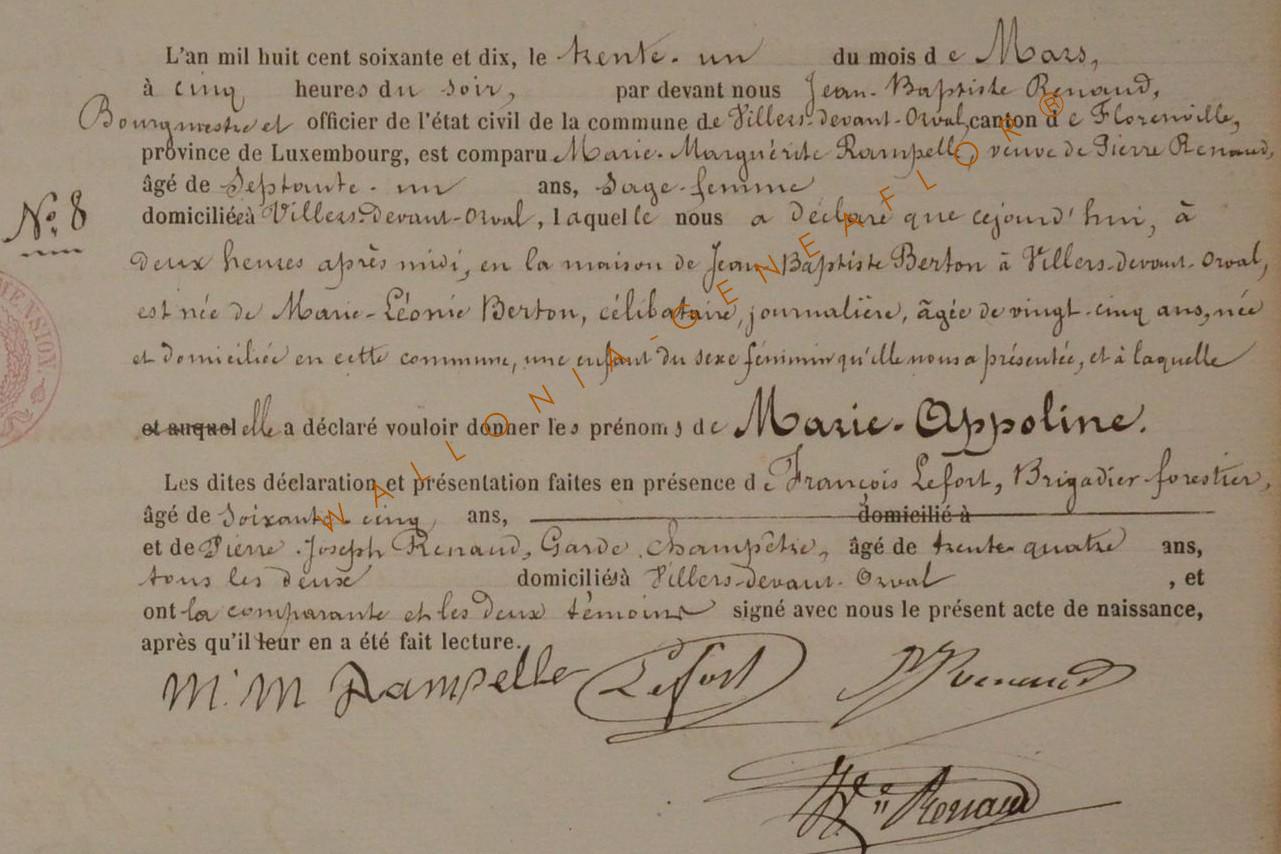 L'an mil huit cent soixante et dix, le trente-un du mois de Mars,
à cinq heures du soir, par devant nous Jean-Baptiste Renaud,
Bourgmestre et officier de l'état civil de la commune de Villers-devant-Orval, canton de Florenville,
province de Luxembourg, est comparu Marie-Marguérite Rampelle, veuve de Pierre Renaud,
âgé de Septante-un ans, Sage-femme
No. 8
domiciliée à Villers-devant-Orval, laquelle nous a déclaré que cejourd'hui, à
deux heures après midi, en la maison de Jean-Baptiste Berton à Villers-devant-Orval,
est née de Marie-Léonie Berton, célibataire, journalière, âgée de vingt-cinq ans, née
et domiciliée en cette commune, une enfant du sexe féminin qu'elle nous a présentée, et à laquelle
et auquel elle a déclaré vouloir donner les prénoms de Marie-Appoline.
Les dites déclaration et présentation faites en présence de François Lefort, Brigadier-forestier,
âgé de Soixante-cinq ans, domicilié à
et de Pierre-Joseph Renaud, Garde-champêtre, âgé de trente-quatre ans,
tous les deux domiciliés à Villers-devant-Orval, et
ont la comparante et les deux témoins signé avec nous le présent acte de naissance,
après qu'il leur en a été fait lecture.
M. M Rampelle Lefort PJ Renaud
Renaud
WALLONIA-GENEAFLOR®